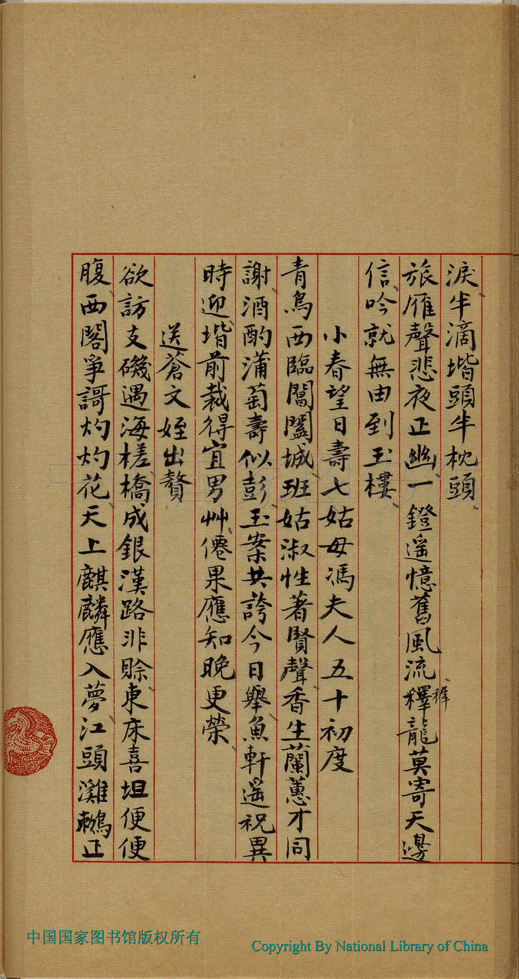 淚半滴堦頭半枕頭
旅雁聲悲夜正幽一鐙遥憶舊風流釋龍莫寄天邊
信吟就無由到玉樓
小春望日壽七姑母馮夫人五十初度
青鳥西臨閶闔城班姑淑性著賢聲香生蘭蕙才同
謝酒酌蒲萄壽似彭玉案共誇今日舉魚軒遥祝異
時迎堦前裁得宜男艸僊果應知晚更榮
送蒼文姪出贅
欲訪支磯遇海槎橋成銀漢路非賒東床喜坦便便
腹西閣爭謌灼灼花天上麒麟應入夢江頭㶉鶒正
中国国家图书馆版权所有
Copyright By National Library of China